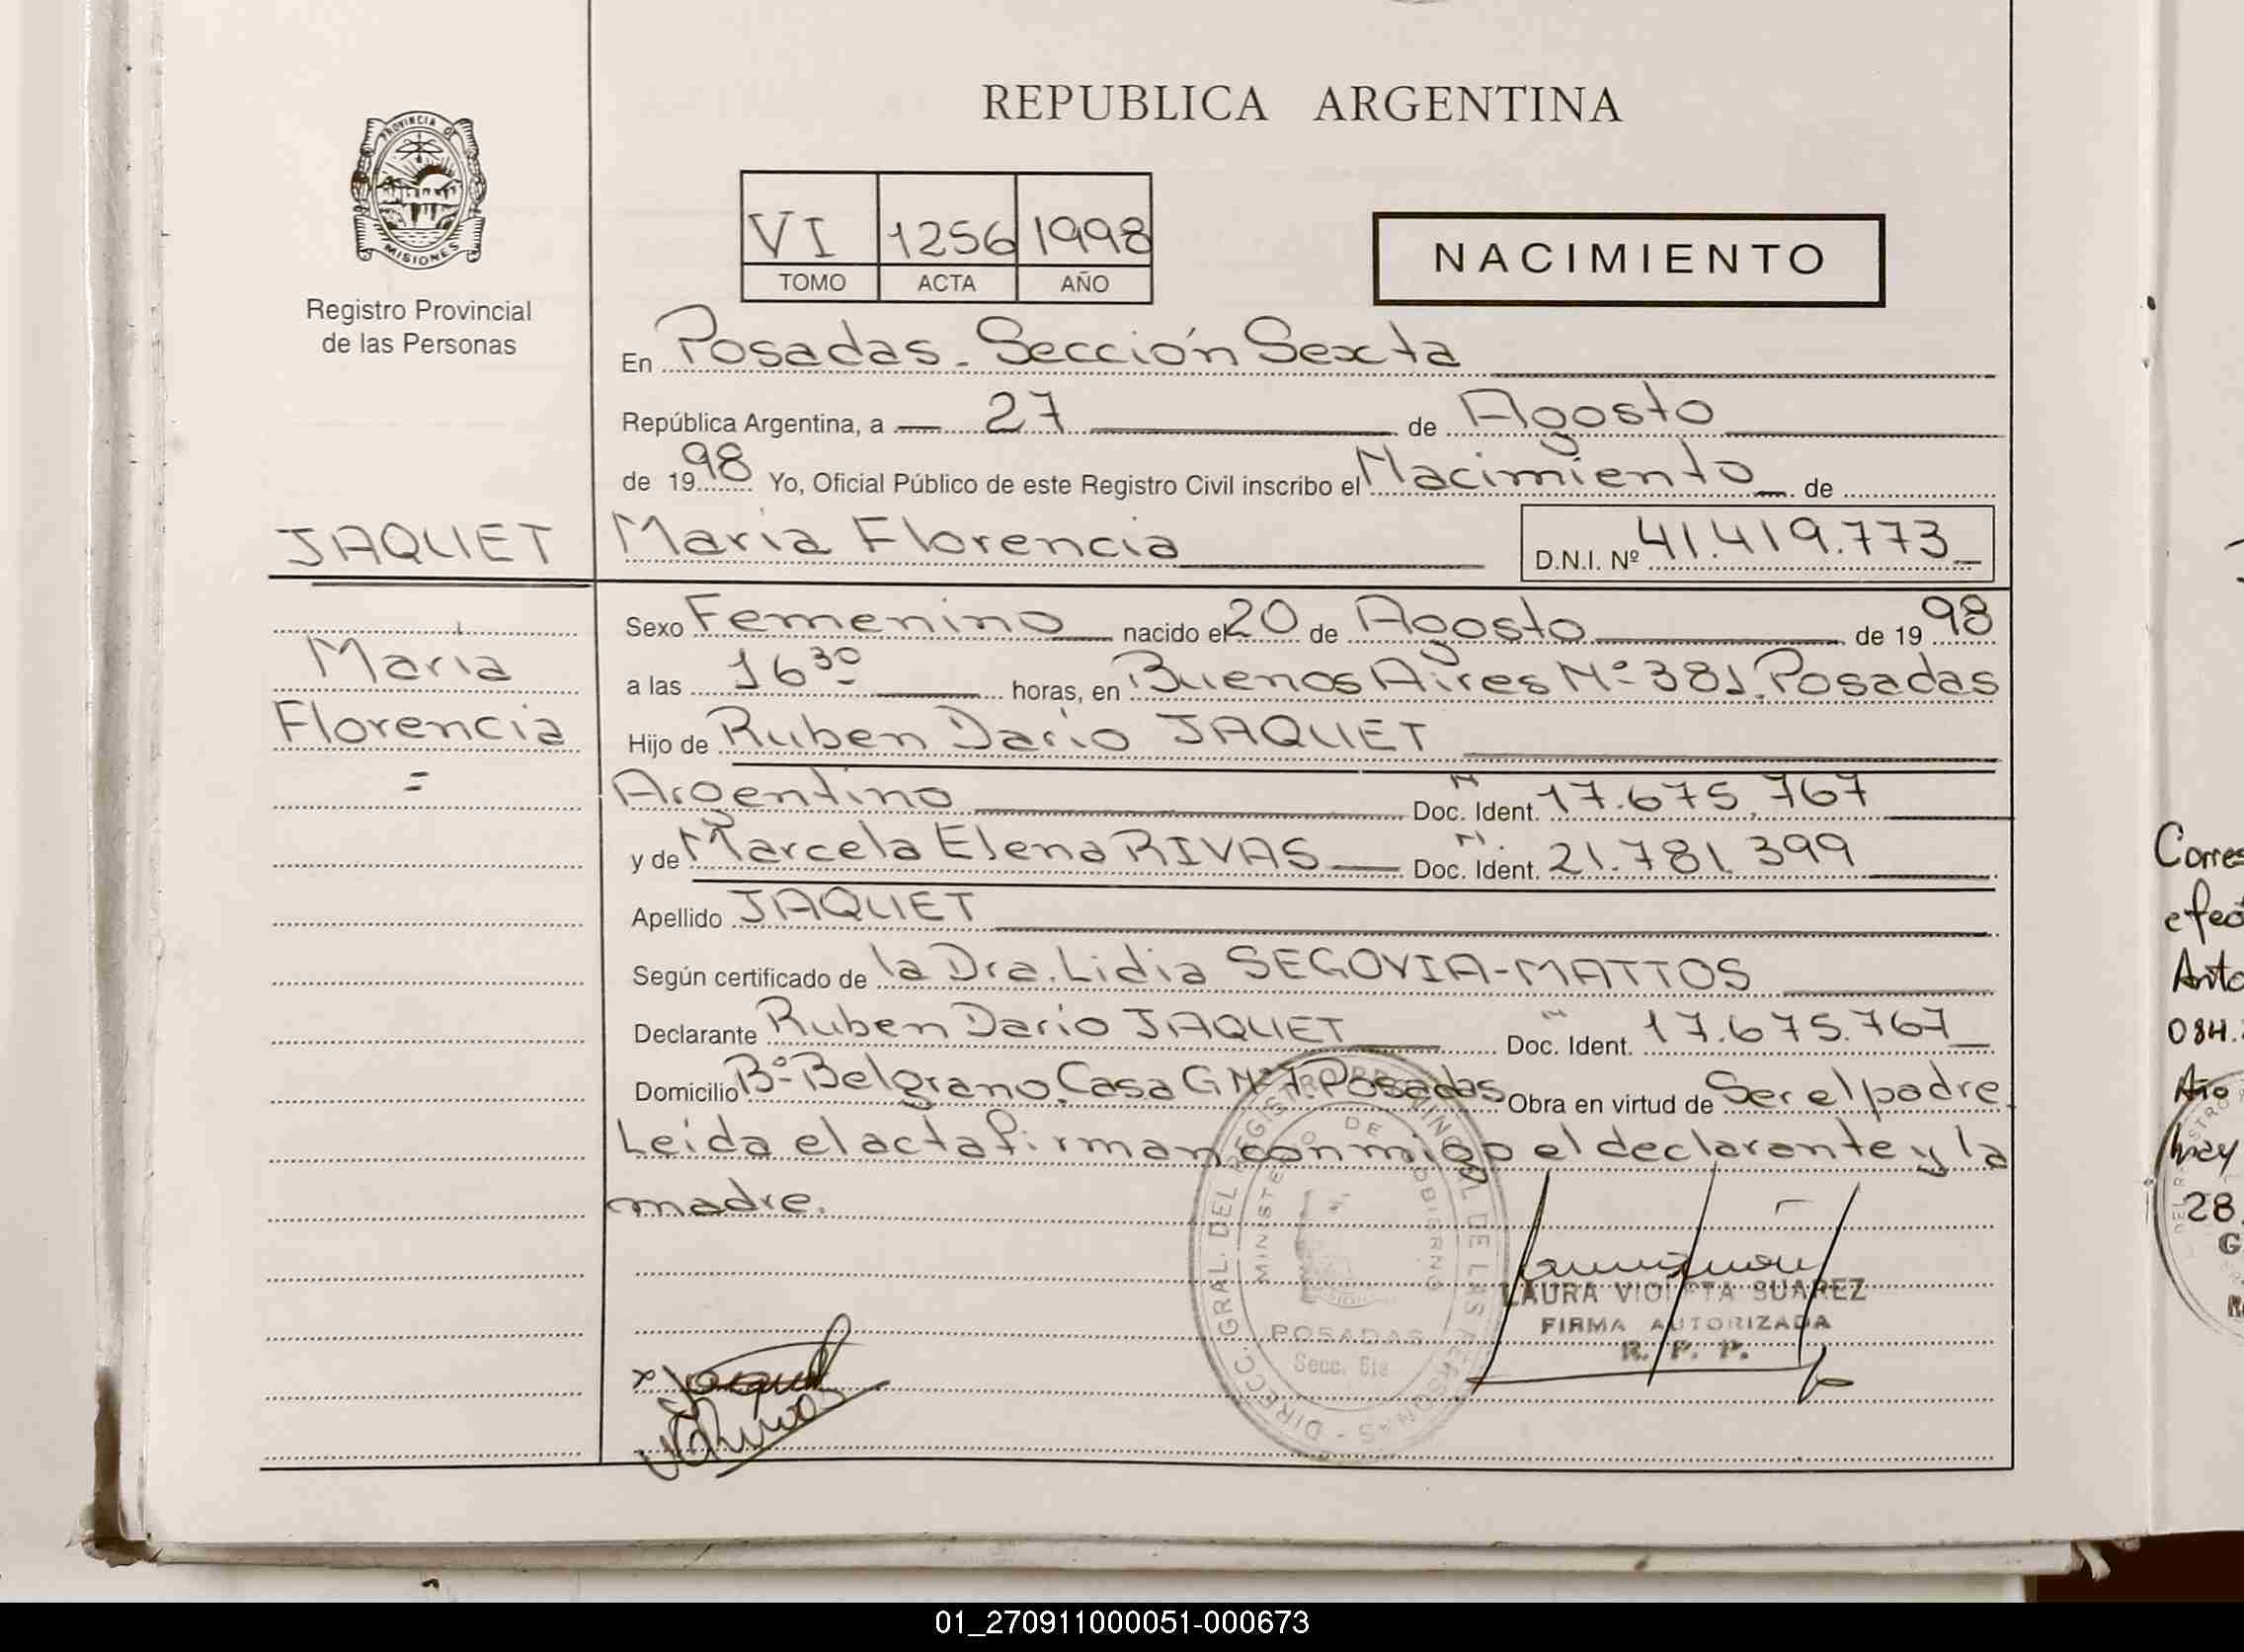 REPUBLICA ARGENTINA
PROVINCIA DE
MISIONES
Registro Provincial
de las Personas
VI 1256 1998
TOMO ACTA AÑO
NACIMIENTO
En Posadas. Sección Sexta
República Argentina, a 27 de Agosto
de 1998 Yo, Oficial Público de este Registro Civil inscribo el Nacimiento de
JAQUET
María Florencia D.N.I. Nº 41.419.773
María
Florencia
Sexo Femenino nacido el 20 de Agosto de 1998
a las 16 30 horas, en Buenos Aires Nº 381. Posadas
Hijo de Ruben Dario JAQUET
Argentino Doc. Ident. 17.675.767
y de Marcela Elena RIVAS Doc. Ident. 21.781.399
Apellido JAQUET
Según certificado de la Dra. Lidia SEGOVIA-MATTOS
Declarante Ruben Dario JAQUET Doc. Ident. 17.675.767
Domicilio Bº Belgrano. Casa G Nº 1 Posadas Obra en virtud de Ser el padre.
Leída el acta firman conmigo el declarante y la
madre.
DIRECC. GRAL. DEL REGISTRO PROVINCIAL DE LAS PERSONAS
MINISTERIO DE GOBIERNO
POSADAS
Secc. 6ta
LAURA VIOLETA SUAREZ
FIRMA AUTORIZADA
R. P. P.
Corres
efec
Anto
084.
Año
hay
28.
01_270911000051-000673